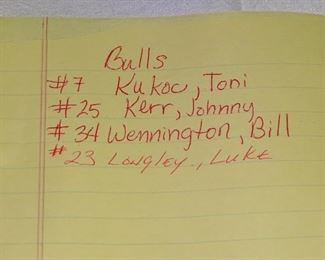 Bulls
#7 Kukoc, Toni
#25 Kerr, Johnny
#34 Wennington, Bill
#23 Longley., Luke